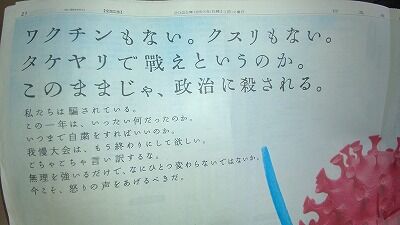 ワクチンもない。クスリもない。
タケヤリで戦えというのか。
このままじゃ、政治に殺される。
私たちは騙されている。
この一年は、いったい何だったのか。
いつまで自粛をすればいいのか。
我慢大会は、もう終わりにして欲しい。
ごちゃごちゃ言い訳するな。
無理を強いるだけで、なにひとつ変わらないではないか。
今こそ、怒りの声をあげるべきだ。